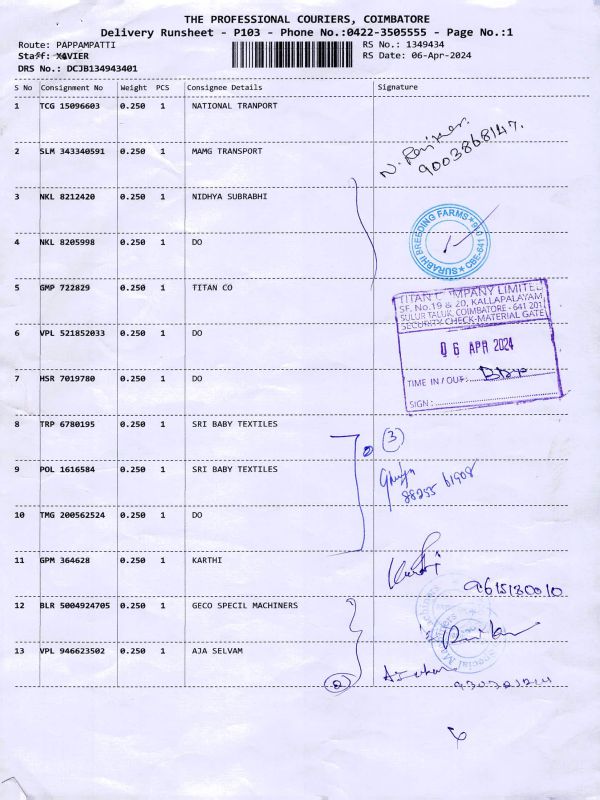 THE PROFESSIONAL COURIERS, COIMBATORE
Delivery Runsheet - P103 - Phone No.:0422-3505555 - Page No.:1
Route: PAPPAMPATTI
RS No.: 1349434
Staff: XAVIER
RS Date: 06-Apr-2024
DRS No.: DCJB134943401
S No Consignment No Weight PCS Consignee Details Signature
1 TCG 15096603 0.250 1 NATIONAL TRANPORT
2 SLM 343340591 0.250 1 MAMG TRANSPORT
9003868147.
3 NKL 8212420 0.250 1 NIDHYA SUBRABHI
SURABHI BREEDING FARMS
CBE-641
4 NKL 8205998 0.250 1 DO
5 GMP 722829 0.250 1 TITAN CO
TITAN COMPANY LIMITED
SF. No.19 & 20, KALLAPALAYAM,
SULUR TALUK, COIMBATORE - 641 201
SECURITY CHECK-MATERIAL GATE
06 APR 2024
6 VPL 521852033 0.250 1 DO
7 HSR 7019780 0.250 1 DO
TIME IN / OUT:
SIGN:
8 TRP 6780195 0.250 1 SRI BABY TEXTILES
3
9 POL 1616584 0.250 1 SRI BABY TEXTILES
88255 61908
10 TMG 200562524 0.250 1 DO
11 GPM 364628 0.250 1 KARTHI
9615180010
12 BLR 5004924705 0.250 1 GECO SPECIL MACHINERS
13 VPL 946623502 0.250 1 AJA SELVAM
2